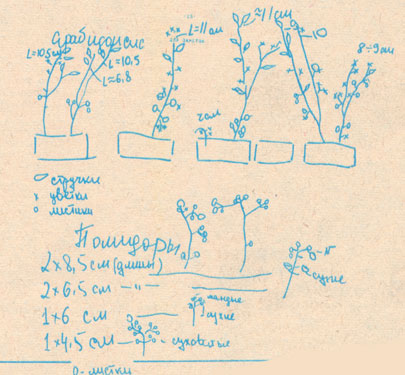 Арабидопсис
L=10,5см
L=10,5
L=6,8
L=11 см
≈11 см
10
8÷9 см
стручки
цветки
листики
Помидоры
2×8,5 см (длины)
2×6,5 см —"—
1×6 см
1×4,5 см — суховатые
сухие
сухие
о - листки